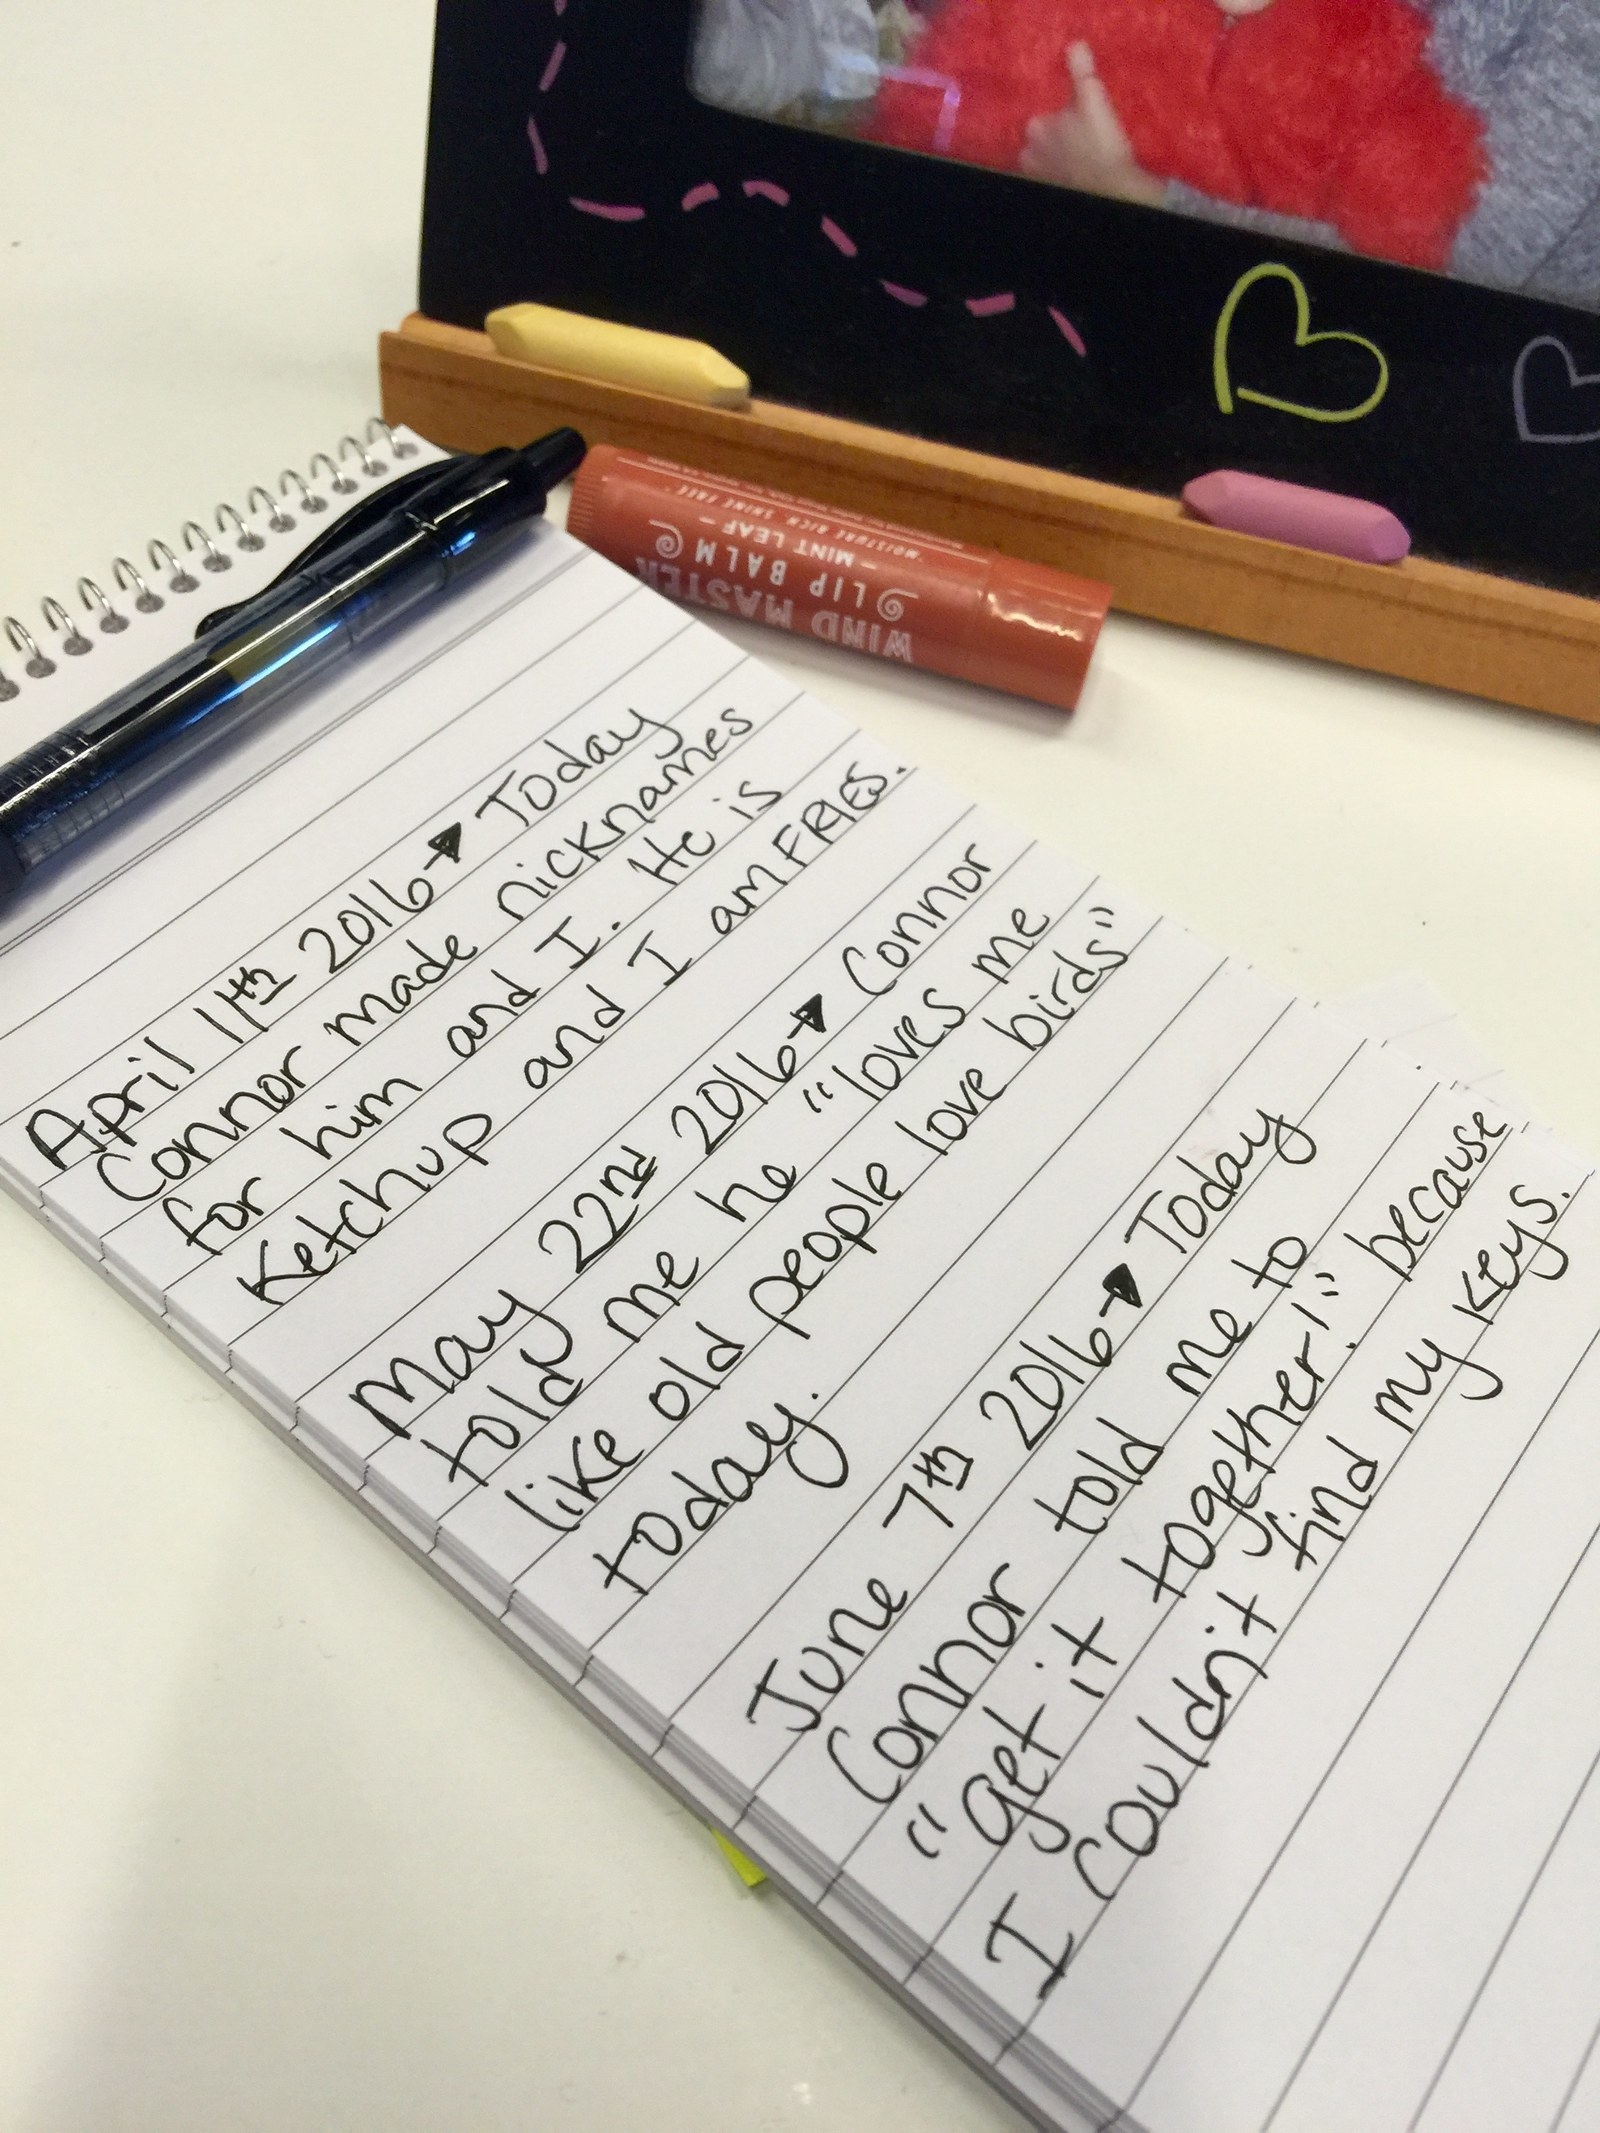 April 11th 2016→ Today
Connor made nicknames
for him and I. He is
Ketchup and I am FRIES.
May 22nd 2016→ Connor
told me he "loves me
like old people love birds"
today.
June 7th 2016→ Today
Connor told me to
"get it together!" because
I couldn't find my keys.
WIND MASTER
LIP BALM
- MINT LEAF -
MOISTURE RICH SHINE FREE